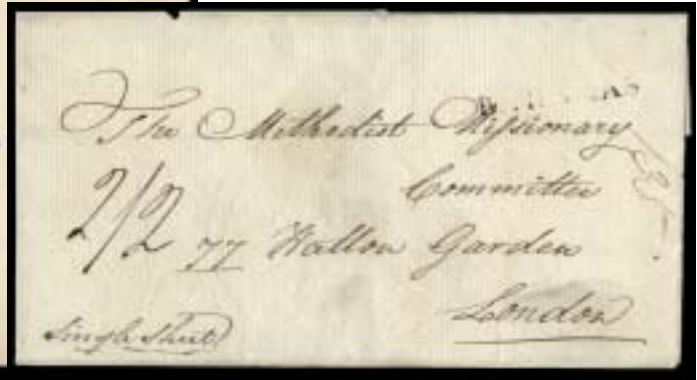 The Methodist Missionary
Committee
2/2 77 Hatton Garden
London
Single Sheet